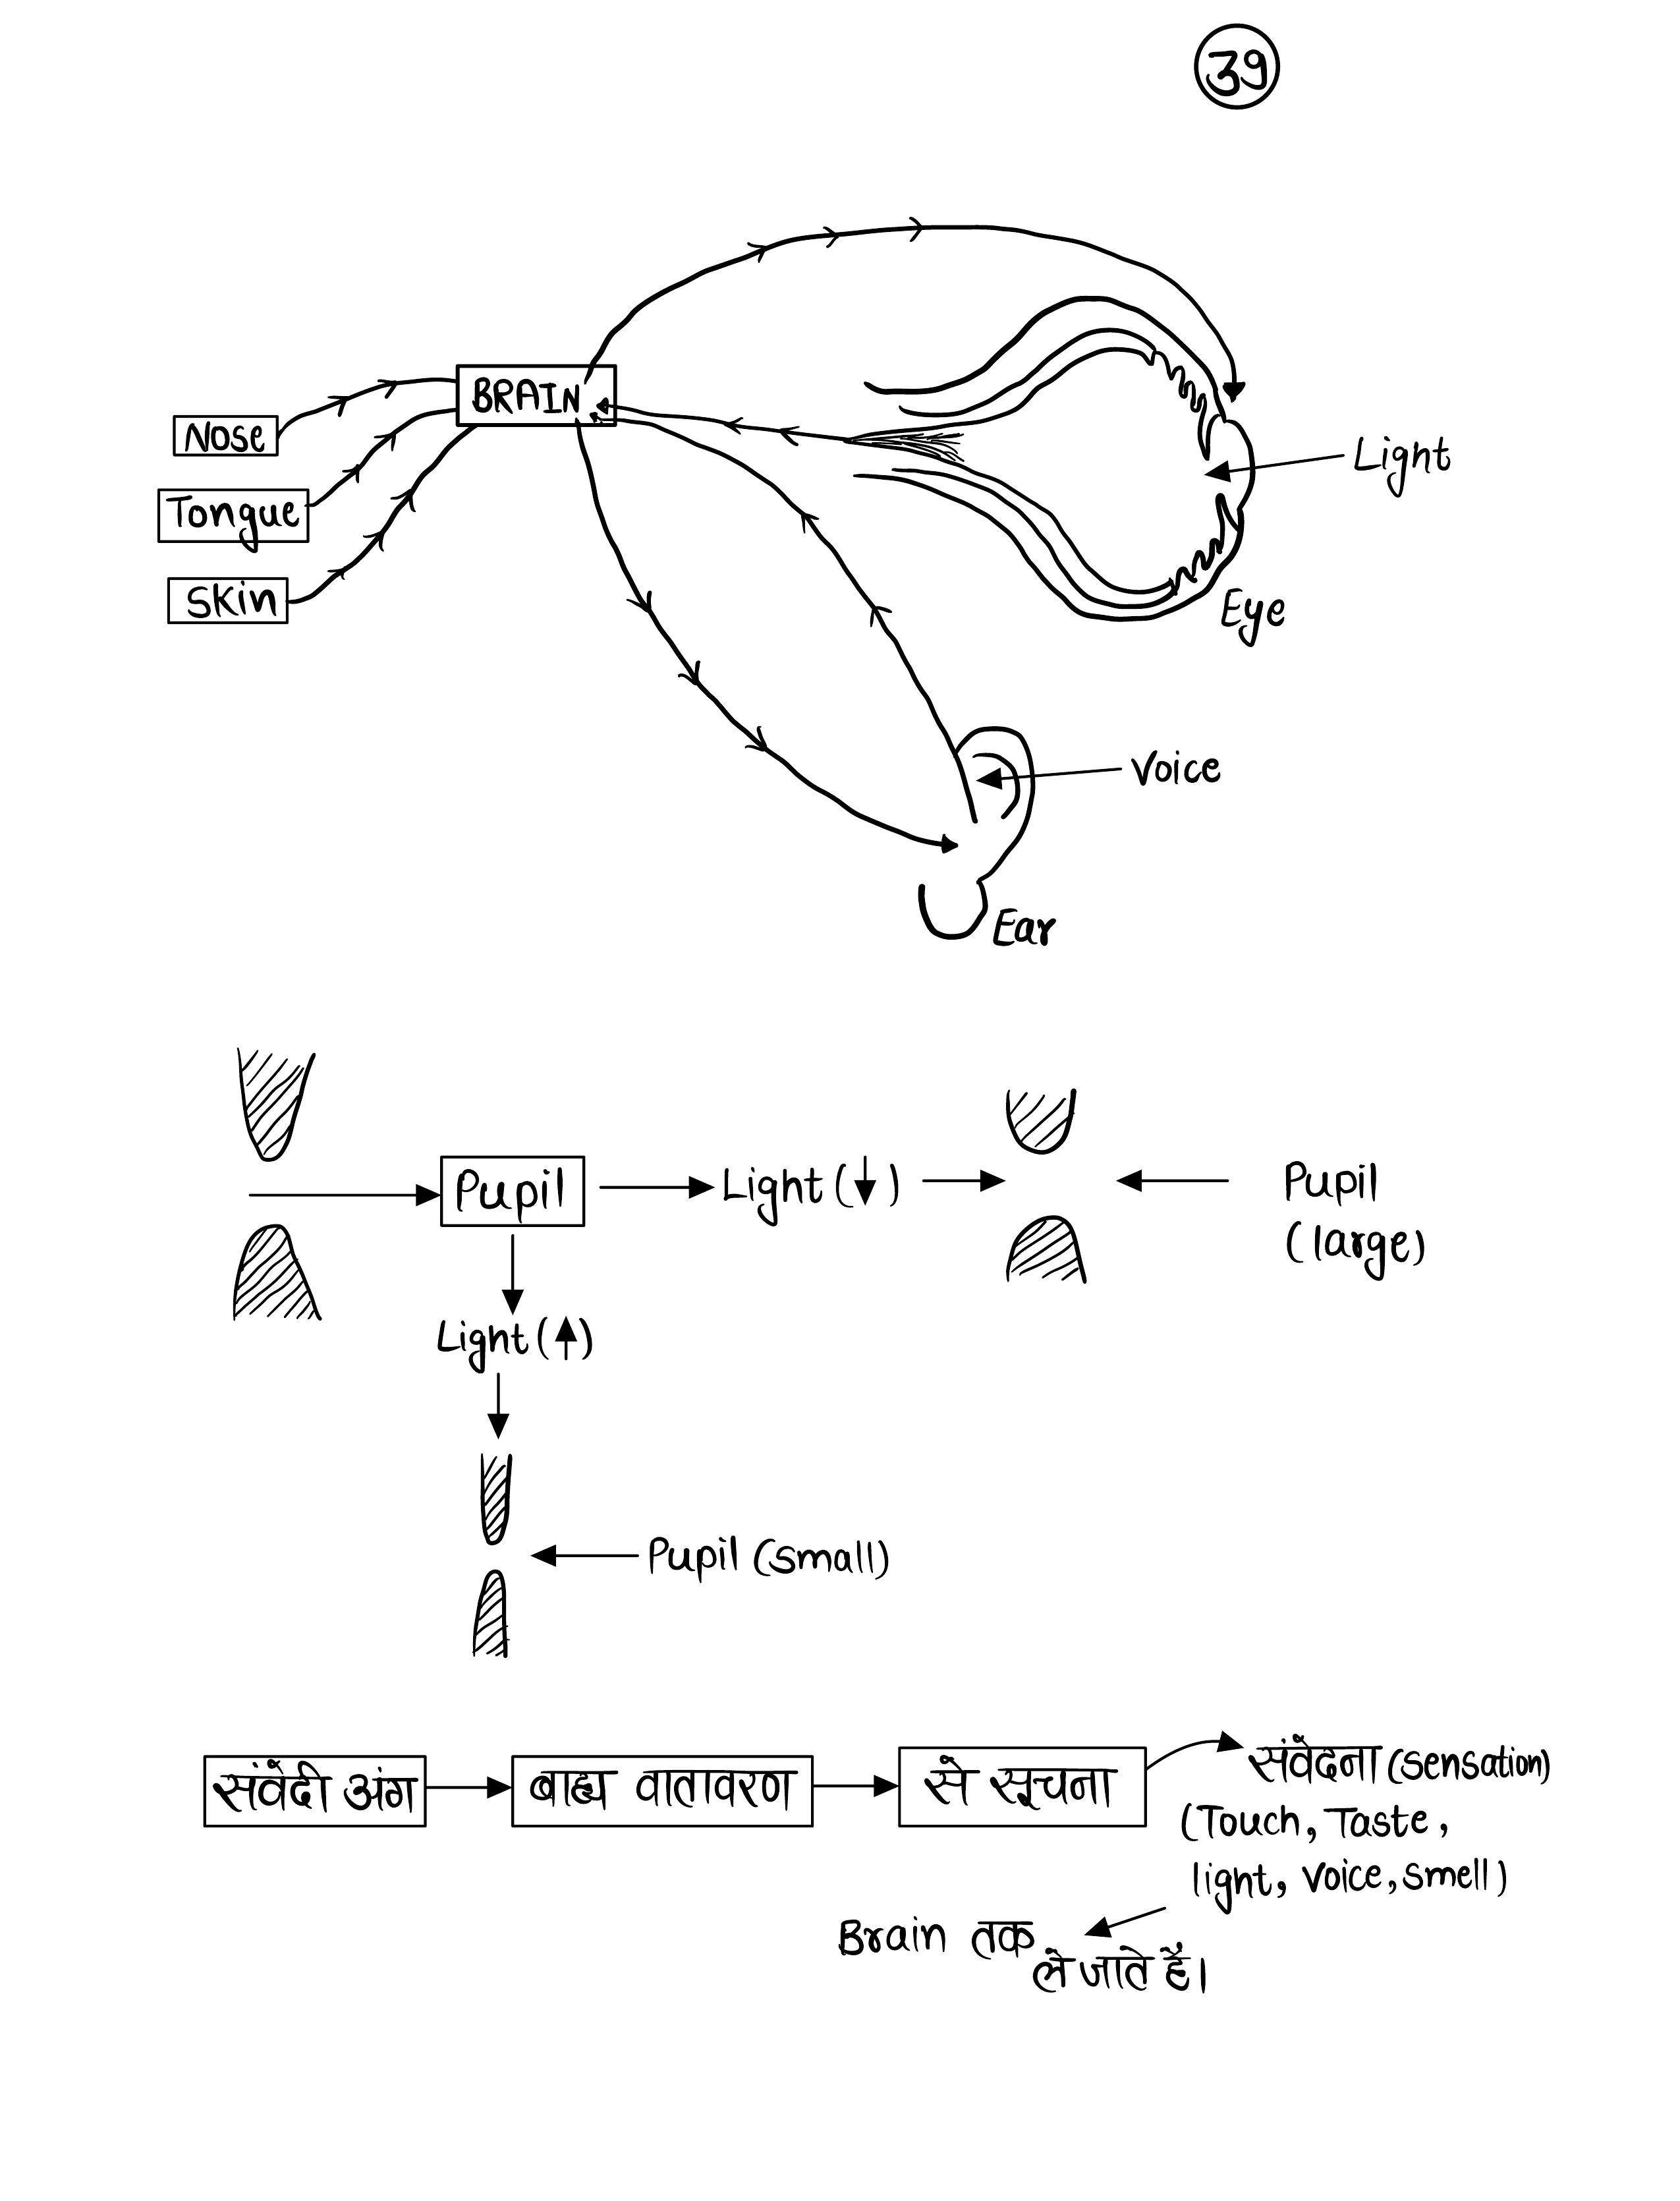 39
BRAIN
Nose
Tongue
Skin
Light
Eye
Voice
Ear
Pupil
Light (↓)
Pupil
(large)
Light (↑)
Pupil (small)
संवेदी अंग
बाह्य वातावरण
से सूचना
संवेदना (sensation)
(Touch, Taste,
light, voice, smell)
Brain तक
ले जाते हैं।